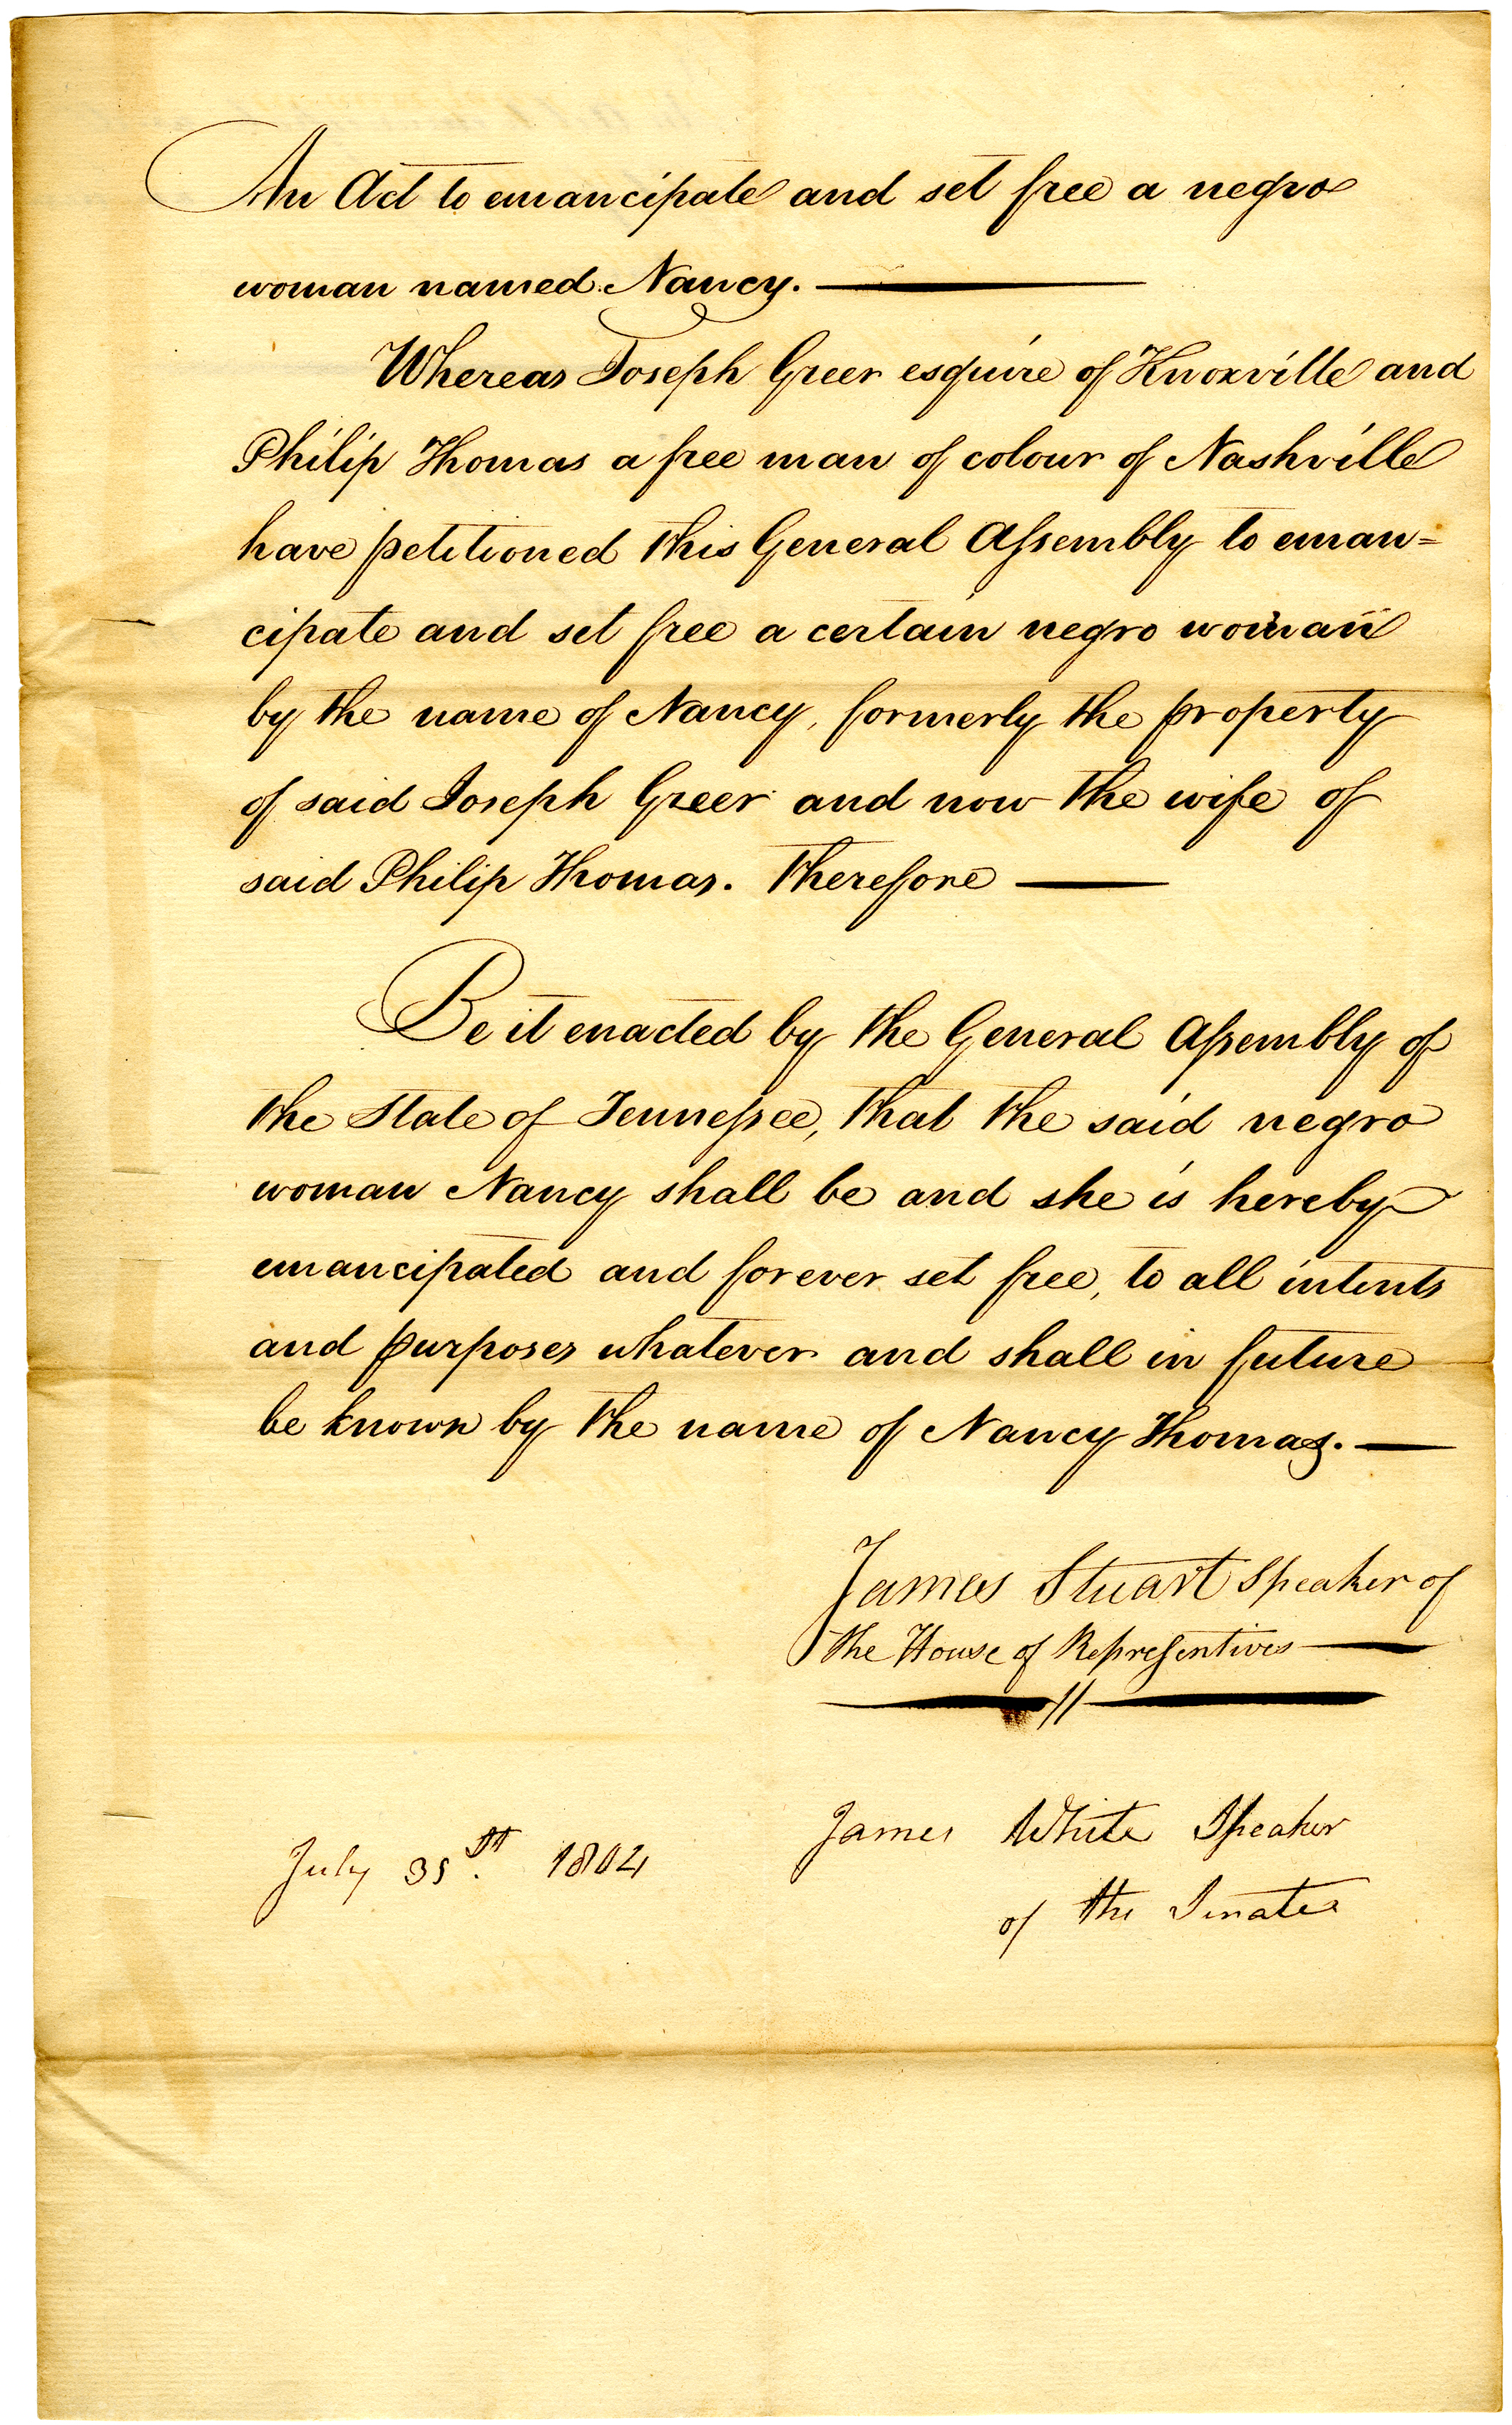 An Act to emancipate and set free a negro
woman named Nancy. ———
Whereas Joseph Greer esquire of Knoxville and
Philip Thomas a free man of colour of Nashville
have petitioned this General Aſsembly to eman=
cipate and set free a certain negro woman
by the name of Nancy, formerly the property
of said Joseph Greer and now the wife of
said Philip Thomas. Therefore ———
Be it enacted by the General Aſsembly of
the State of Tenneſsee, that the said negro
woman Nancy shall be and she is hereby
emancipated and forever set free, to all intents
and purposes whatever and shall in future
be known by the name of Nancy Thomas. —
James Stuart Speaker of
the House of Repreſentives ———
James White Speaker
of the Senate
July 31st. 1804